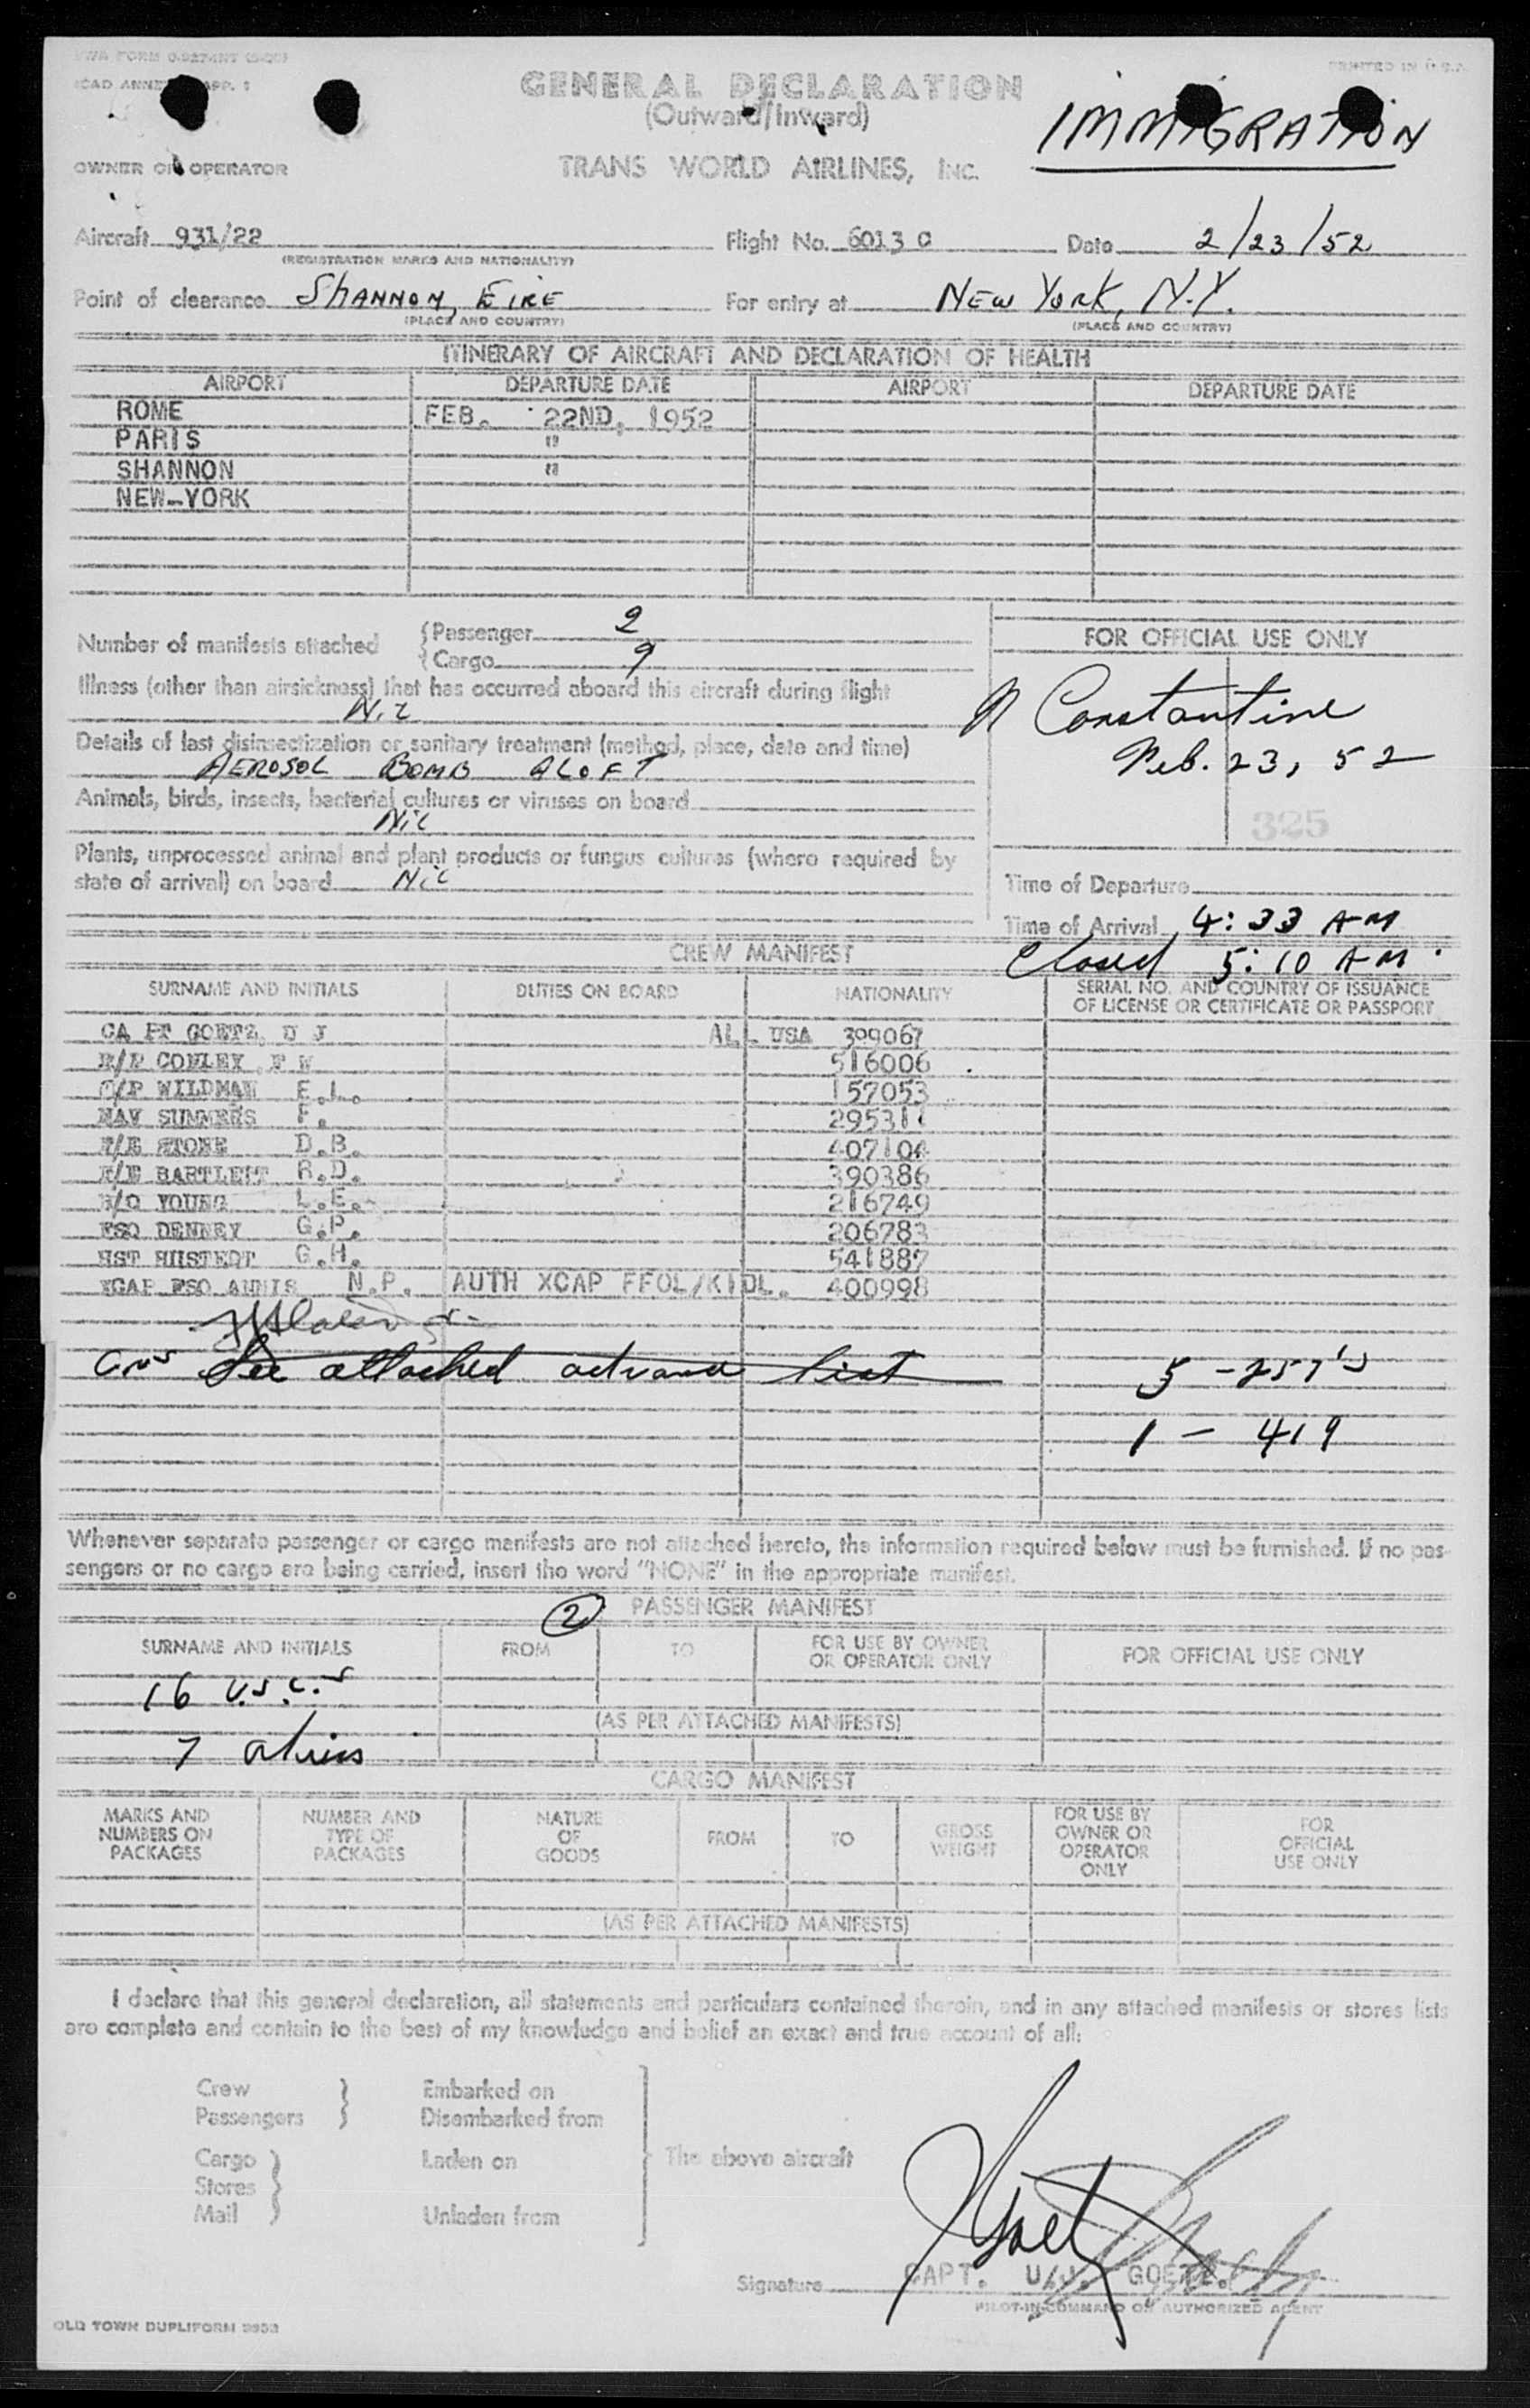 TWA FORM
ICAO ANNEX APP. 1
PRINTED IN U.S.A.
GENERAL DECLARATION
(Outward/Inward)
IMMIGRATION
OWNER OR OPERATOR
TRANS WORLD AIRLINES, INC.
Aircraft 931/22 Flight No. 6013 C Date 2/23/52
(REGISTRATION MARKS AND NATIONALITY)
Point of clearance SHANNON, EIRE For entry at NEW YORK, N.Y.
(PLACE AND COUNTRY) (PLACE AND COUNTRY)
ITINERARY OF AIRCRAFT AND DECLARATION OF HEALTH
AIRPORT DEPARTURE DATE AIRPORT DEPARTURE DATE
ROME FEB. 22ND, 1952
PARIS "
SHANNON "
NEW-YORK
Number of manifests attached
{Passenger 2
{Cargo 9
Illness (other than airsickness) that has occurred aboard this aircraft during flight
Nil
Details of last disinsectization or sanitary treatment (method, place, date and time)
AEROSOL BOMB ALOFT
Animals, birds, insects, bacterial cultures or viruses on board
Nil
Plants, unprocessed animal and plant products or fungus cultures (where required by
state of arrival) on board Nil
FOR OFFICIAL USE ONLY
N Constantine
Feb. 23, 52
325
Time of Departure
Time of Arrival 4:33 AM
Closed 5:10 AM.
CREW MANIFEST
SURNAME AND INITIALS DUTIES ON BOARD NATIONALITY SERIAL NO. AND COUNTRY OF ISSUANCE
OF LICENSE OR CERTIFICATE OR PASSPORT
CA PT GOETZ U J ALL USA 309067
CONLEY F W 516006
WILDMAN E.L. 157053
NAV SUMMERS F. 295311
F/E STONE D.B. 407104
F/E BARTLETT R.D. 390386
R/O YOUNG L.E. 216749
FSO DENNEY G.P. 206783
HST G.H. 541887
XCAP FSO ANNIS N.P. AUTH XCAP FFOL/KIDL. 400998
See attached advance list
5 - 257's
1 - 419
Whenever separate passenger or cargo manifests are not attached hereto, the information required below must be furnished. If no pas-
sengers or no cargo are being carried, insert the word "NONE" in the appropriate manifest.
2 PASSENGER MANIFEST
SURNAME AND INITIALS FROM TO FOR USE BY OWNER
OR OPERATOR ONLY FOR OFFICIAL USE ONLY
16 U.S.C.s
(AS PER ATTACHED MANIFESTS)
7 aliens
CARGO MANIFEST
MARKS AND
NUMBERS ON
PACKAGES
NUMBER AND
TYPE OF
PACKAGES
NATURE
OF
GOODS
FROM
TO
GROSS
WEIGHT
FOR USE BY
OWNER OR
OPERATOR
ONLY
FOR
OFFICIAL
USE ONLY
(AS PER ATTACHED MANIFESTS)
I declare that this general declaration, all statements and particulars contained therein, and in any attached manifests or stores lists
are complete and contain to the best of my knowledge and belief an exact and true account of all:
Crew
Passengers
Embarked on
Disembarked from
Cargo
Stores
Mail
Laden on
Unladen from
The above aircraft
Signature CAPT. U/J. GOETZ.
PILOT-IN-COMMAND OR AUTHORIZED AGENT
OLD TOWN DUPLIFORM